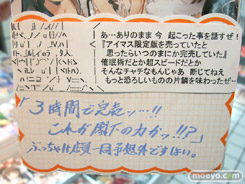 あ…ありのまま 今 起こった事を話すぜ！
『アイマス限定版を売っていたと
思ったらいつのまにか完売していた』
催眠術だとか超スピードだとか
そんなチャチなもんじゃあ 断じてねえ
もっと恐ろしいものの片鱗を味わったぜ…
「3時間で完売ッ…!!
これが閣下の力かッ!!?」
ぶっちゃけ店員一同予想外ですばい。
moeyo.com